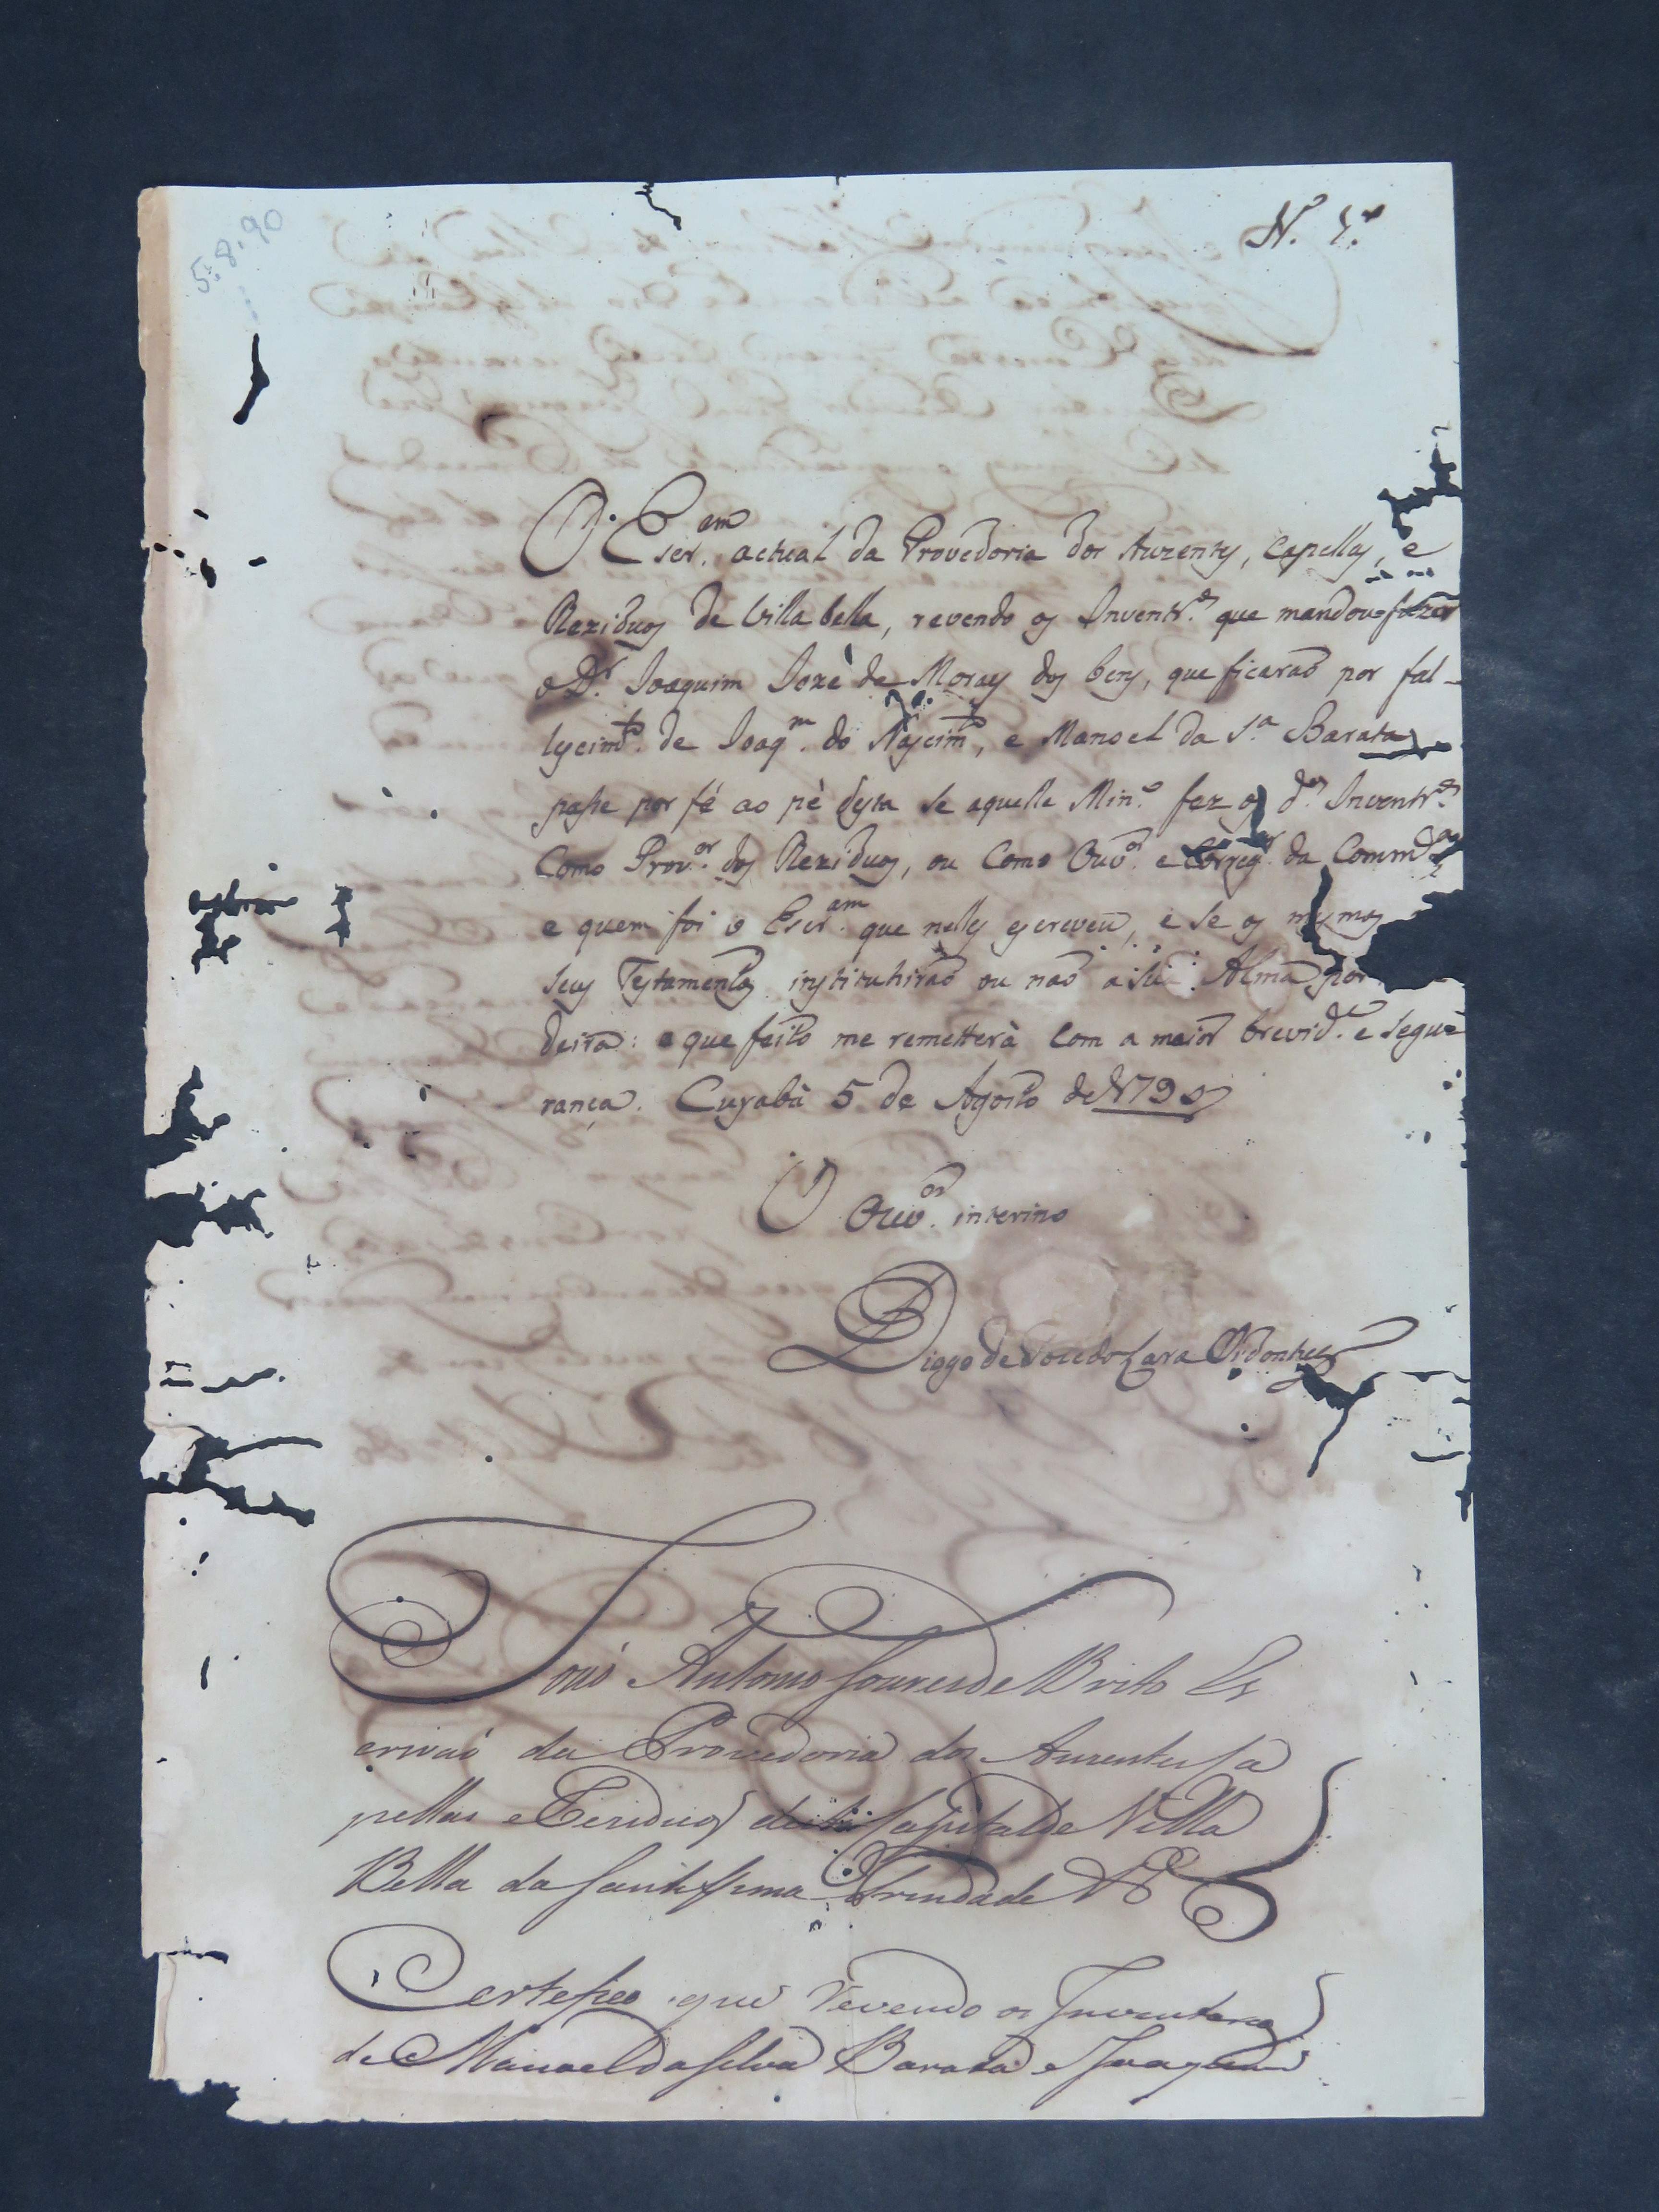 5.8.90
N.º 1.º
O Escr.am actual da Provedoria dos Auzentes, Capellas, e
Reziduos de Villa bella, revendo os Inventr.os que mandou fazer
o D.r Joaquim Jozè de Moraes dos bens, que ficaraõ por fal-
lecim.to de Joaq.m do Nascim.to, e Manoel da S.a Barata
passe por fé ao pè desta se aquelle Min.o fez os d.os Inventr.os
Como Prov.or dos Reziduos, ou Como Ouv.or e Correg.or da Comm.ca
e quem foi o Escr.am que nelles escreveu, e se os mesmos
seus Testamentos instituhiraõ ou naõ a sua Alma por
deira: e que feito me remetterà Com a maior brevid.e e segu
rança. Cuyabà 5 de Agosto de 1790
O Ouv.or interino
Diogo de Toledo Lara Ordonhes
Joaõ Antonio Soures de Brito Es
crivaõ da Provedoria dos Auzentes Ca
pellas e Reziduos desta Capital de Villa
Bella da Santissima Trindade V.E
Certefico que Revendo os Inventarios
de Manoel da Silva Barata e Joaquim